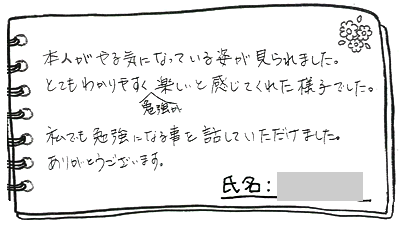 本人がやる気になっている姿が見られました。
とてもわかりやすく楽しいと感じてくれた様子でした。
勉強が
私でも勉強になる事を話していただけました。
ありがとうございます。
氏名: